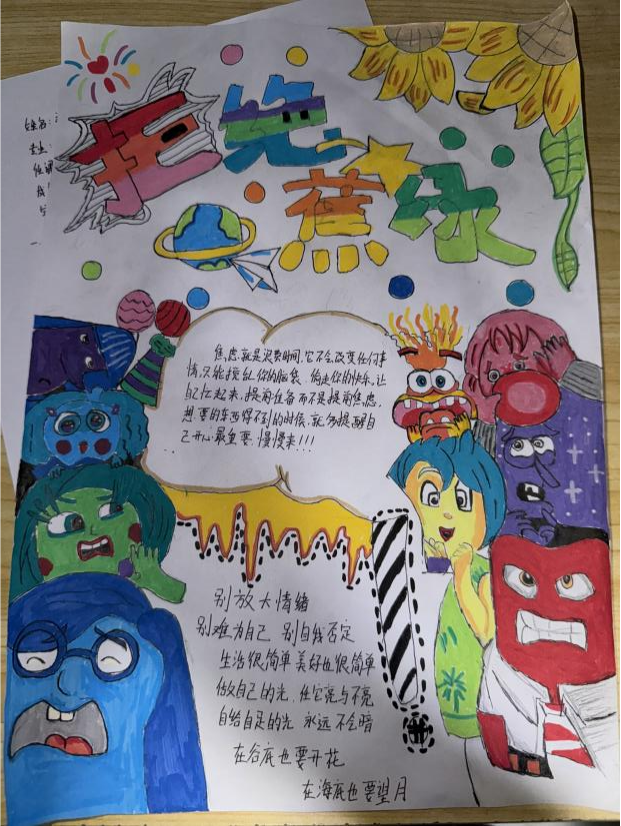 拒绝
蕉绿
焦虑就是浪费时间,它不会改变任何事
情,只能搅乱你的脑袋,偷走你的快乐,让
自己忙起来,提前准备而不是提前焦虑,
想要的东西得不到的时候,就多提醒自
己开心最重要,慢慢来!!!
别放大情绪
别难为自己 别自我否定
生活很简单 美好也很简单
做自己的光,任它亮与不亮
自给自足的光 永远不会暗
在谷底也要开花
在海底也要望月